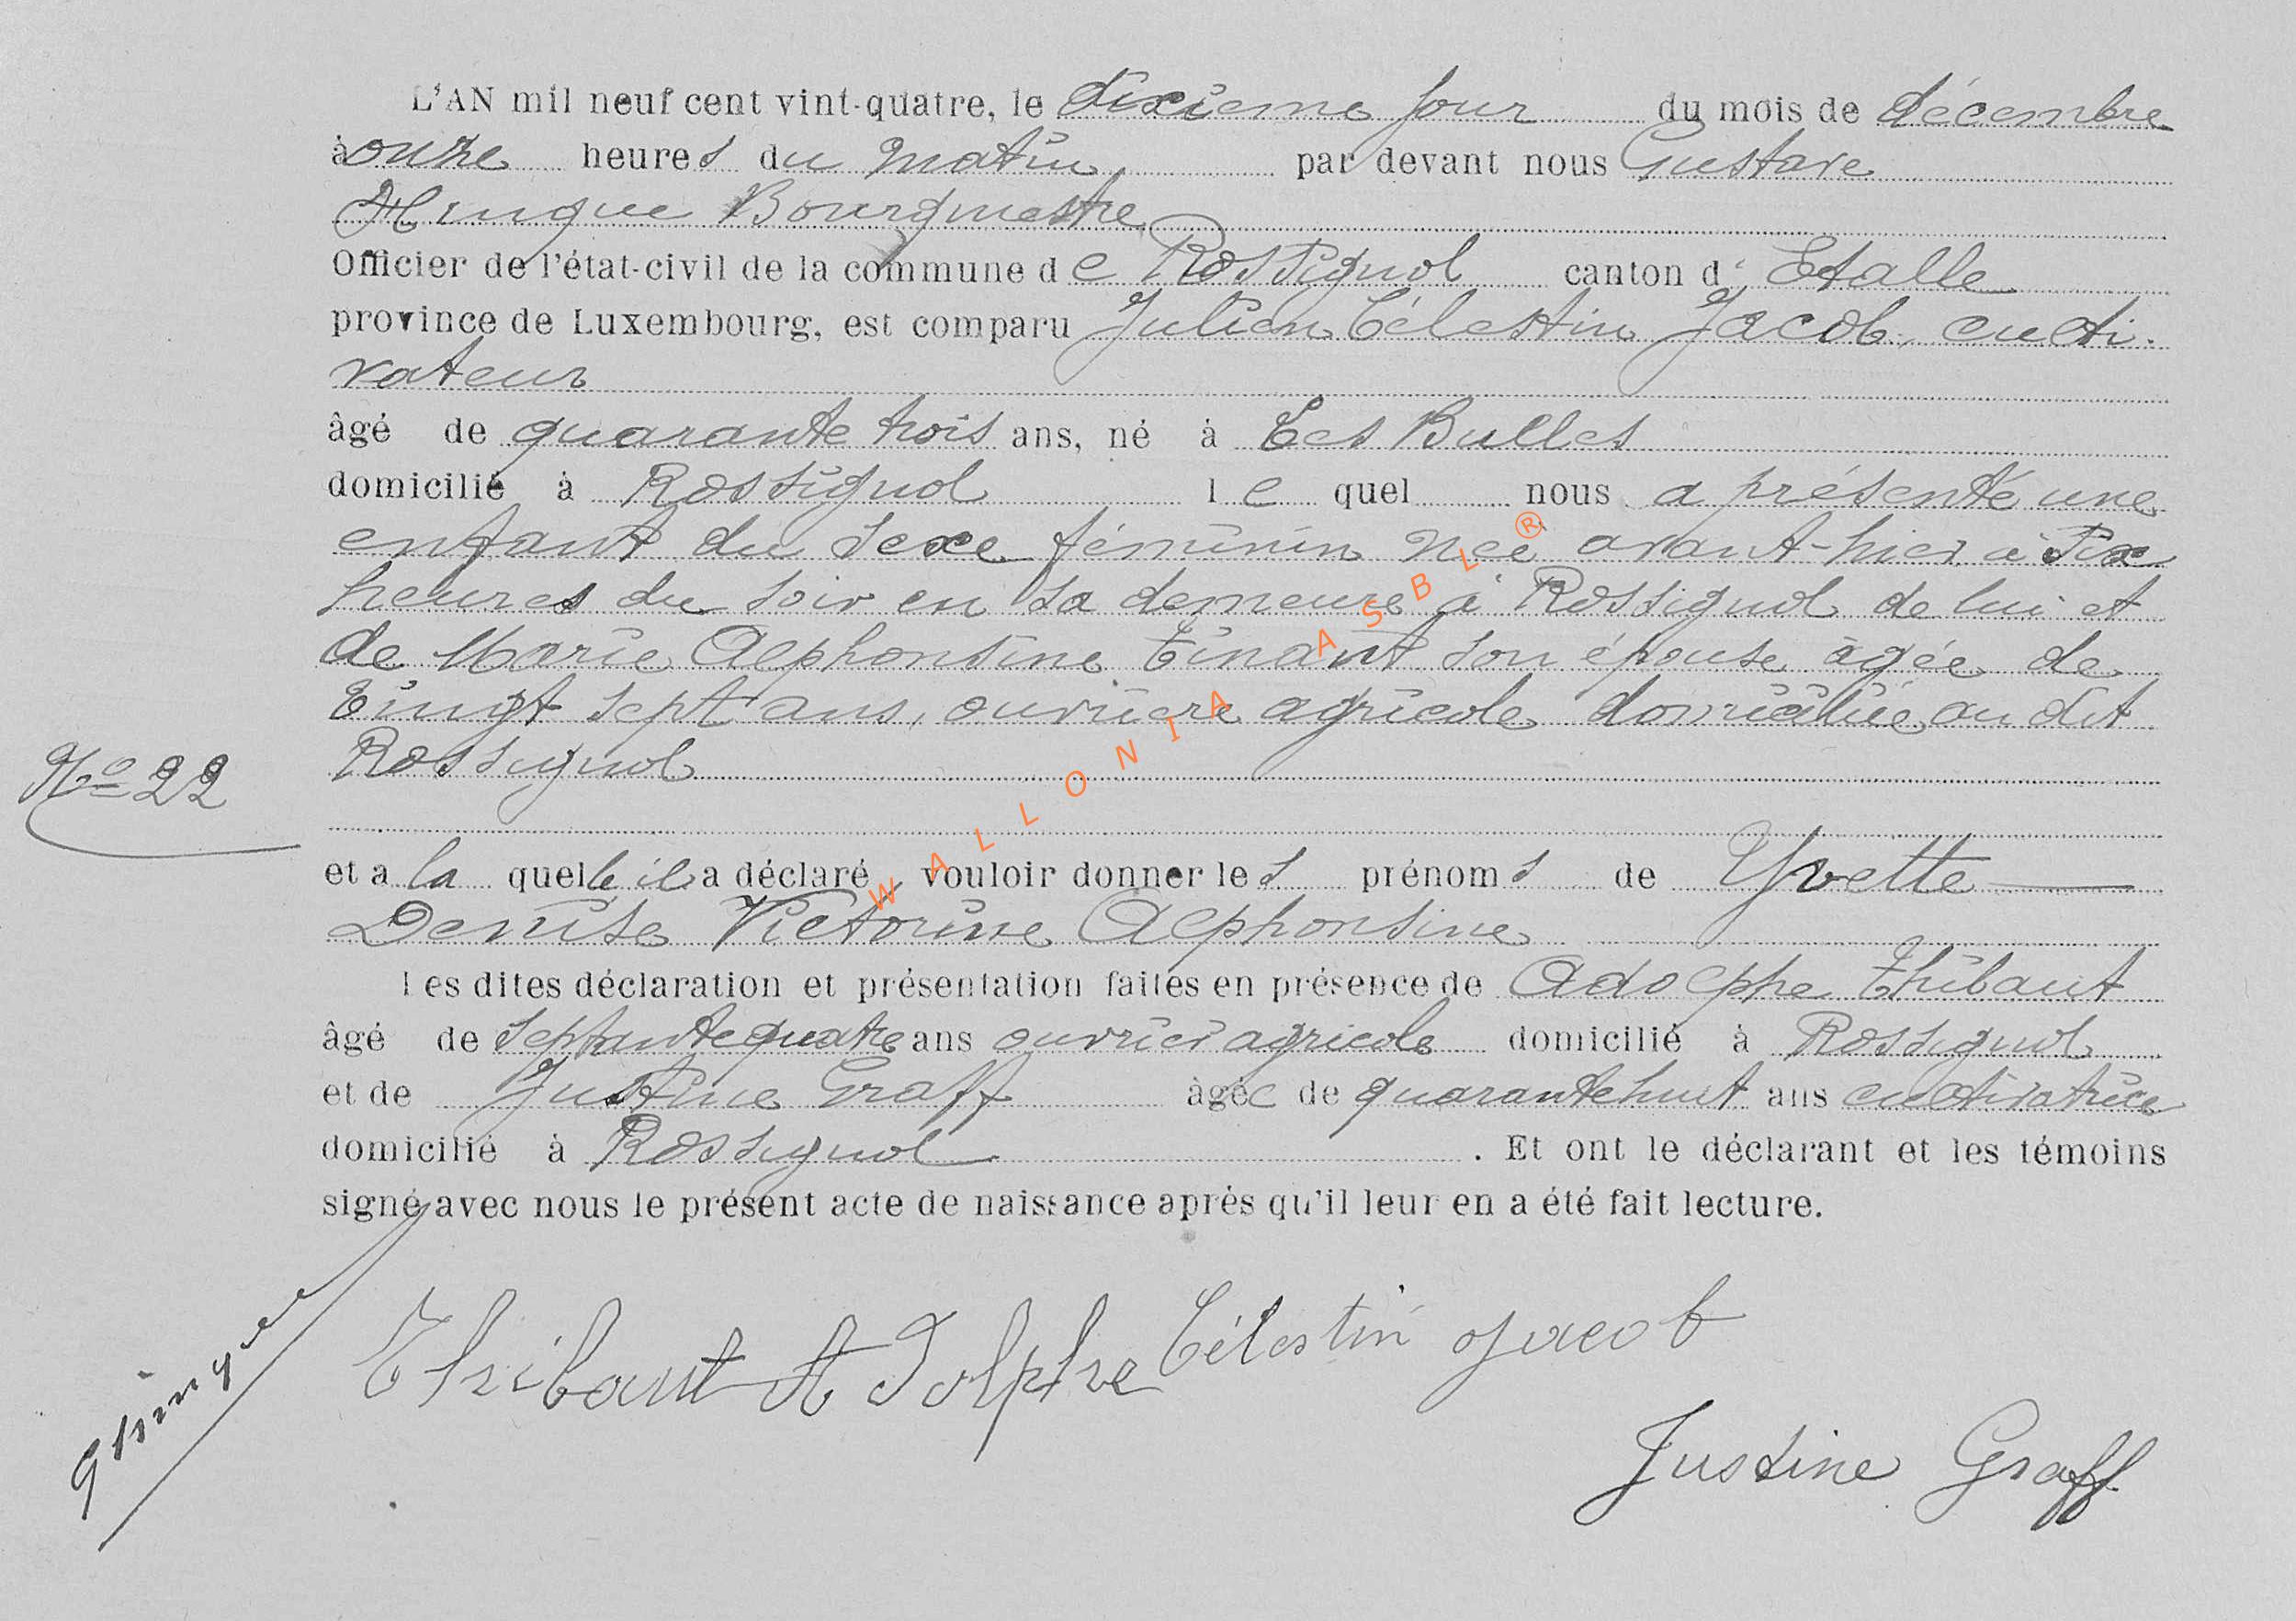 L'AN mil neuf cent vint-quatre, le dixième jour du mois de décembre
à onze heures du matin par devant nous Gustave
Hinque Bourgmestre
Officier de l'état-civil de la commune de Rossignol canton d' Etalle
province de Luxembourg, est comparu Julien Célestin Jacob, culti-
vateur
âgé de quarante trois ans, né à Les Bulles
domicilié à Rossignol lequel nous a présenté une
enfant du sexe féminin née avant-hier à six
heures du soir en sa demeure à Rossignol de lui et
de Marie Alphonsine Tinant son épouse âgée de
Vingt sept ans, ouvrière agricole domiciliée au dit
Rossignol
N° 22
et a la quelle il a déclaré vouloir donner les prénoms de Yvette
Denise Victorine Alphonsine
Les dites déclaration et présentation faites en présence de Adolphe Thibaut
âgé de septante quatre ans ouvrier agricole domicilié à Rossignol
et de Justine Graff âgée de quarante huit ans cultivatrice
domicilié à Rossignol . Et ont le déclarant et les témoins
signé avec nous le présent acte de naissance après qu'il leur en a été fait lecture.
Thibaut Adolphe Célestin Jacob
GHinque
Justine Graff
WALLONIA ASBL ®